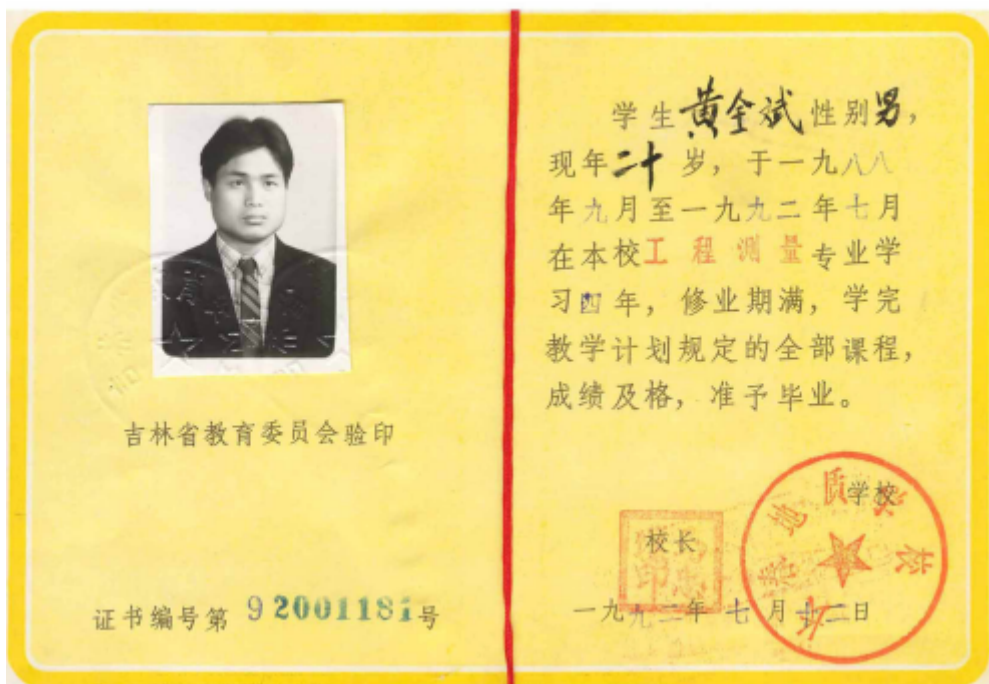 吉林省教育委员会验印
证书编号第 92001181号
学生黄全斌性别男，
现年二十岁，于一九八八
年九月至一九九二年七月
在本校工程测量专业学
习四年，修业期满，学完
教学计划规定的全部课程，
成绩及格，准予毕业。
学校
校长
一九九二年七月十二日
地质学校